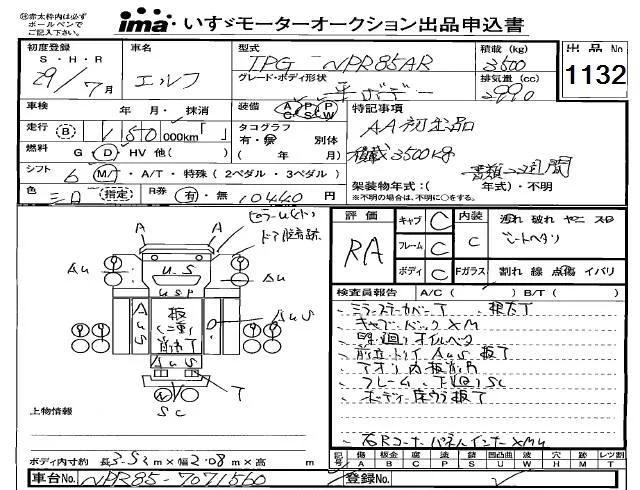 ㊟赤太枠内は必ず
ボールペンで
ご記入下さい。
ima いすゞモーターオークション出品申込書
初度登録 車名 型式 積載(kg) 出品No
S・H・R
29/7月 エルフ TPG-NPR85AR 3500 1132
グレード・ボディ形状 排気量(cc)
平ボデー 2990
車検 年 月・抹消 装備 AC PS PW 特記事項
走行 B 150 000km「 」 タコグラフ AA初出品
有・無 別体
燃料 G D HV 他( ) ( 年 月) 積載3500kg
シフト 6 M/T・A/T・特殊(2ペダル・3ペダル) 書類2週間
色 (指定) R券 有・無 10440円 架装物年式:( 年式)・不明
※不明の場合は、不明に○をする。
評価 キャブ C 内装 汚れ 破れ ヤニ スレ
RA フレーム C C シートヘタリ
ボディ C Fガラス 割れ 線 点傷 イバリ
検査員報告 A/C( ) B/T( )
ミラーステーカバーT
キャブバックXM
オイルベタ
AUS 板T
アオリ内板
フレーム、下廻りSC
右RコーナーパネルインナーXM4
AU US AU
USP
AUS 板 AUS
AUS T
SC
上物情報
ボディ内寸約 長3.52m×幅2.08m×高 m
記号 傷A 板金B 腐C 塗P 錆S 凹凸曲U 波W 穴H 跡M レツ割T
車台No. NPR85-7071560 登録No.